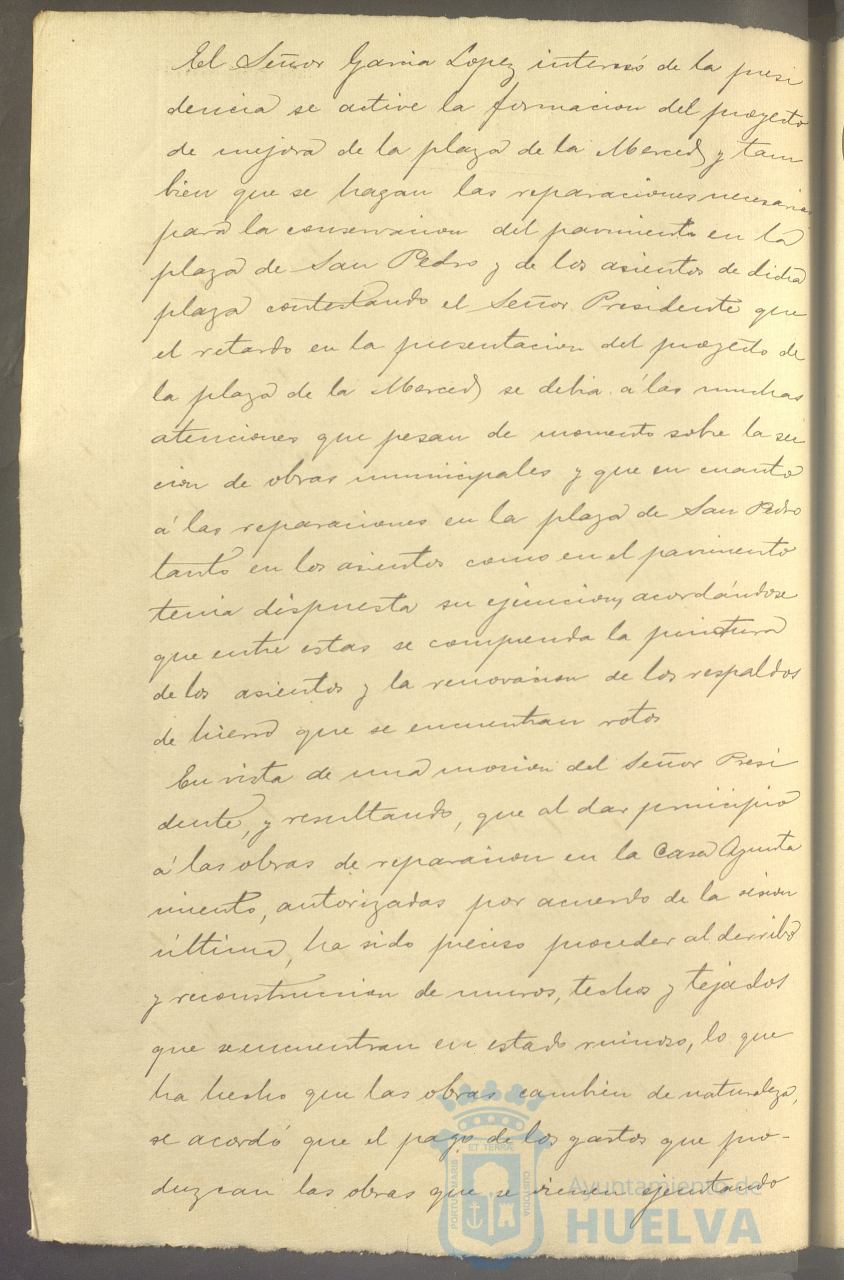 El Señor Garcia Lopez interesó de la presi
dencia se active la formacion del proyecto
de mejora de la plaza de la Merced y tam
bien que se hagan las reparaciones necesarias
para la conservacion del pavimento en la
plaza de San Pedro y de los asientos de dicha
plaza contestando el Señor Presidente que
el retardo en la presentacion del proyecto de
la plaza de la Merced se debia á las muchas
atenciones que pesan de momento sobre la sec
cion de obras municipales y que en cuanto
á las reparaciones en la plaza de San Pedro
tanto en los asientos como en el pavimento
tenia dispuesta su ejecucion, acordándose
que entre estas se comprenda la pinctura
de los asientos y la renovacion de los respaldos
de hierro que se encuentran rotos
En vista de una mocion del Señor Presi
dente, y resultando, que al dar principio
á las obras de reparacion en la Casa Ayunta
miento, autorizadas por acuerdo de la sesion
última, ha sido preciso proceder al derribo
y reconstruccion de muros, techos y tejados
que se encuentran en estado ruinoso, lo que
ha hecho que las obras cambien de naturaleza,
se acordó que el pago de los gastos que pro-
duzcan las obras que se vienen ejecutando
ET TERRÆ
PORTUS MARIS
CUSTODIA
Ayuntamiento de
HUELVA